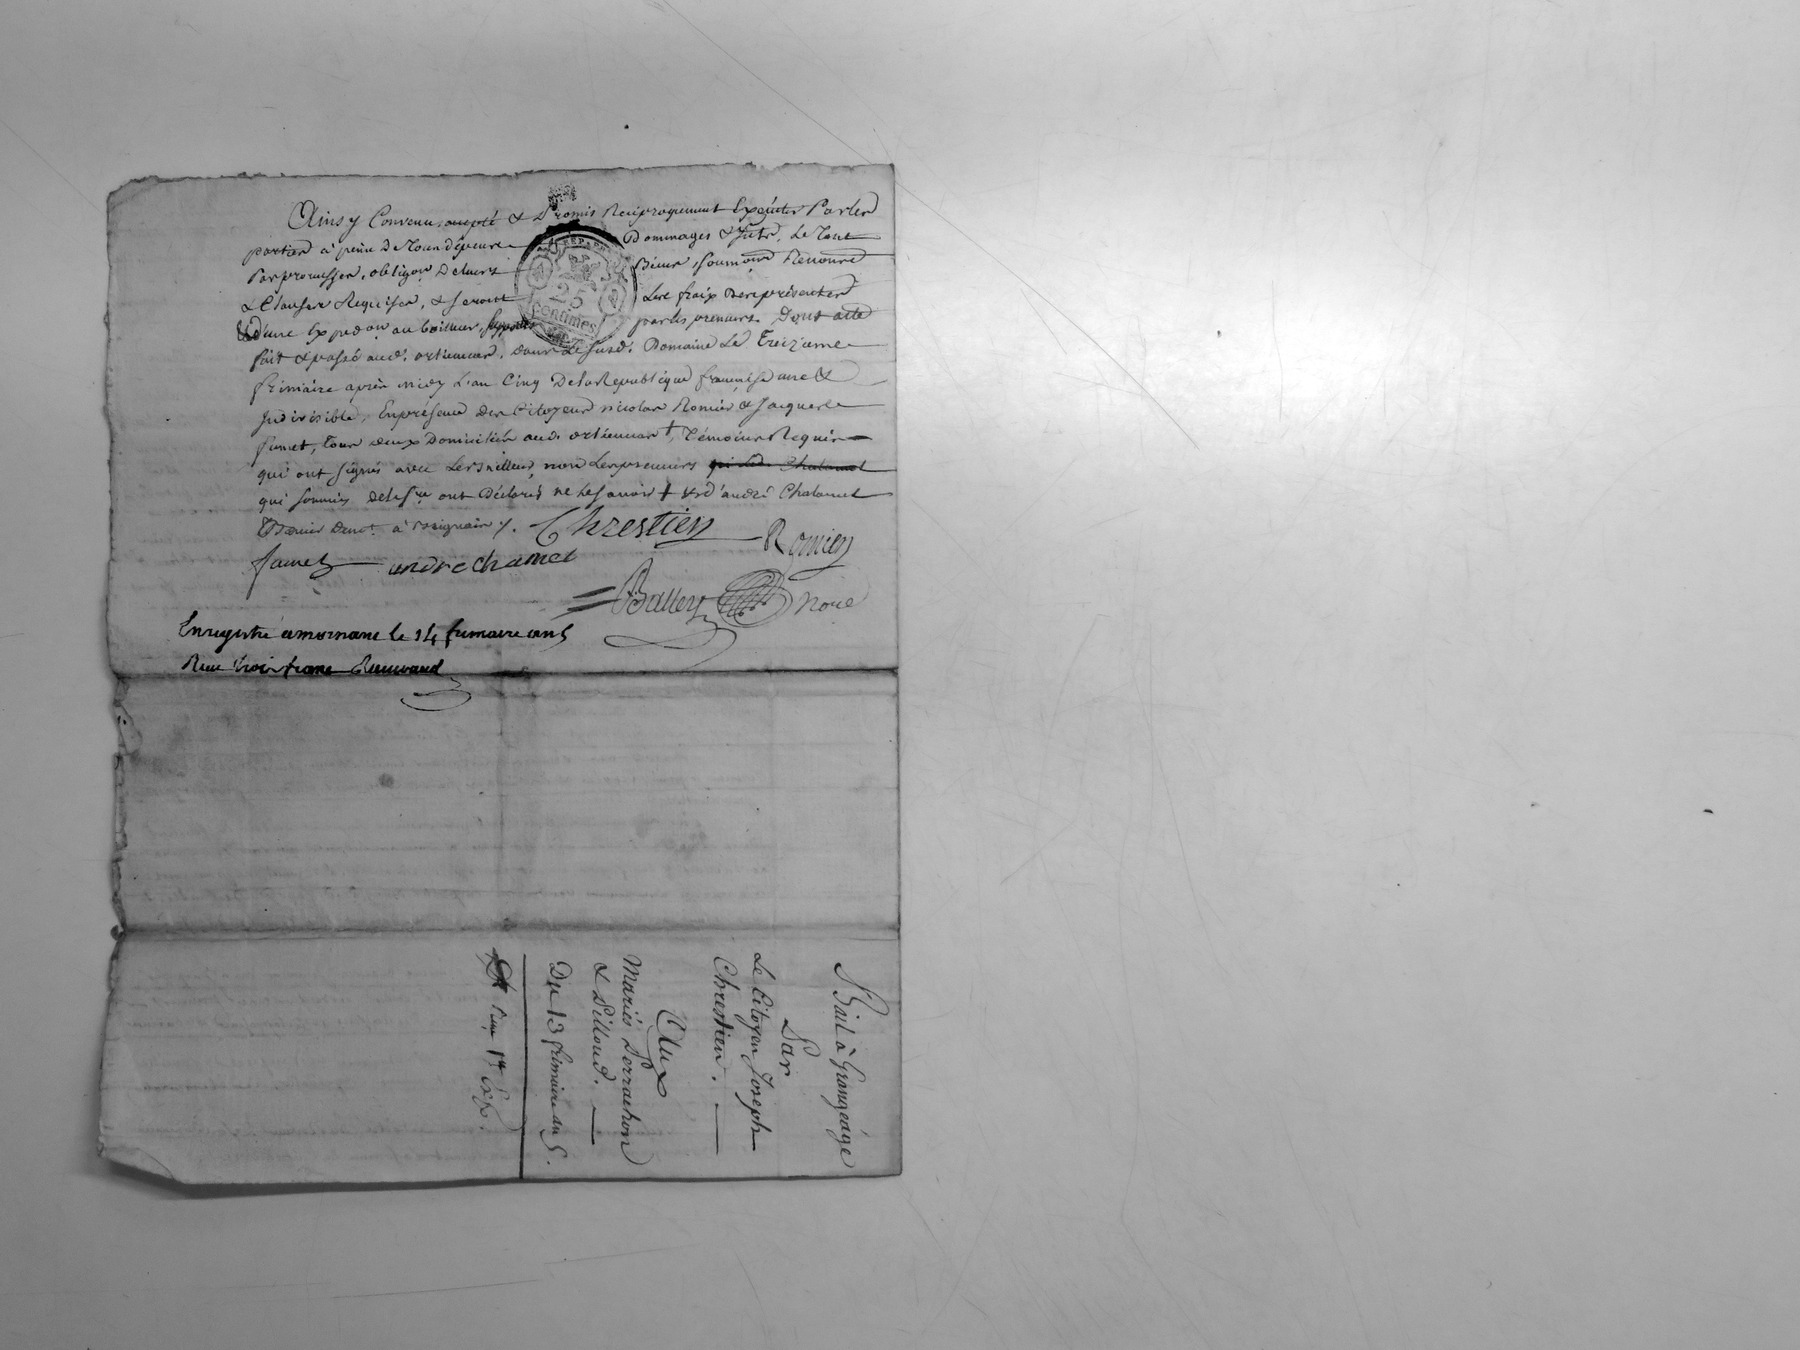 Ainsy Convenu, accepté & Promis Reciproquement Exécuter Parles
parties à peine De Tous dépens Dommages & Intr. Le Tout
Par promesses, obligon De leurs Biens, soumons Renonce
& Clauses Requises, & seront Les fraix
D'une Expedon au bailleur, supportés par les preneurs. Dont acte
fait & passé aud. ortiennas, dans le susd. Domaine Le Treizieme
frimaire après midy L'an Cinq De la Republique française une &
Indivisible, En présence des Citoyens nicolas Romier & Jacques
Tous deux Domiciliés aud. ortiennas +, Témoins Requis
qui ont signés avec Led. Bailleur, non Les preneurs qui Led. Chalamel
qui sommés de le fre ont Déclarés ne le savoir + & d'andré Chalamel
à
Chrestien
Romier
andre chamel
Balley Nore
Enregistré a mornane le 14 frimaire an 5
Recu trois francs
Bail à Grangeage
Par
Le Citoyen Joseph
Chrestien.
Aux
Mariés Perrachon
& Pilloud.
Du 13 frimaire an 5.
Pour 1re Exp.
REP. FRA.
25
centimes